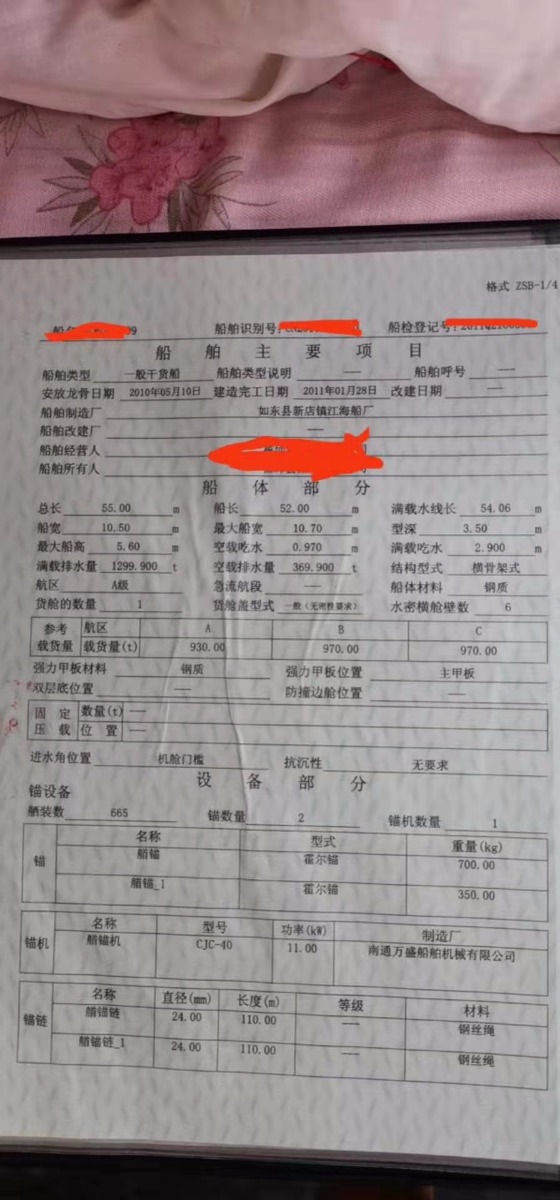 格式 ZSB-1/4
船舶识别号: 船检登记号:
船舶主要项目
船舶类型 一般干货船 船舶类型说明 —— 船舶呼号 ——
安放龙骨日期 2010年05月10日 建造完工日期 2011年01月28日 改建日期 ——
船舶制造厂 如东县新店镇江海船厂
船舶改建厂 ——
船舶经营人
船舶所有人
船体部分
总长 55.00 m 船长 52.00 m 满载水线长 54.06 m
船宽 10.50 m 最大船宽 10.70 m 型深 3.50 m
最大船高 5.60 m 空载吃水 0.970 m 满载吃水 2.900 m
满载排水量 1299.900 t 空载排水量 369.900 t 结构型式 横骨架式
航区 A级 急流航段 —— 船体材料 钢质
货舱的数量 1 货舱盖型式 一般(无密性要求) 水密横舱壁数 6
参考 航区 A B C
载货量 载货量(t) 930.00 970.00 970.00
强力甲板材料 钢质 强力甲板位置 主甲板
双层底位置 —— 防撞边舱位置 ——
固定 数量(t) ——
压载 位置 ——
进水角位置 机舱门槛 抗沉性 无要求
设备部分
锚设备
舾装数 665 锚数量 2 锚机数量 1
锚 名称 型式 重量(kg)
艏锚 霍尔锚 700.00
艏锚_1 霍尔锚 350.00
锚机 名称 型号 功率(kW) 制造厂
艏锚机 CJC-40 11.00 南通万盛船舶机械有限公司
锚链 名称 直径(mm) 长度(m) 等级 材料
艏锚链 24.00 110.00 —— 钢丝绳
艏锚链_1 24.00 110.00 —— 钢丝绳